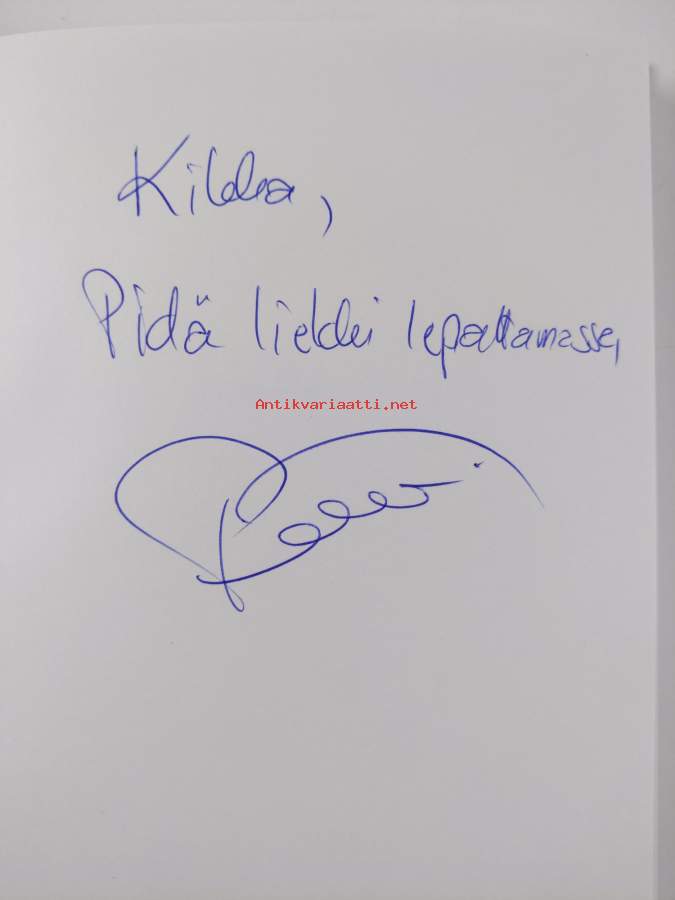 Kikka,
Pidä liekki lepattamassa,
Antikvariaatti.net